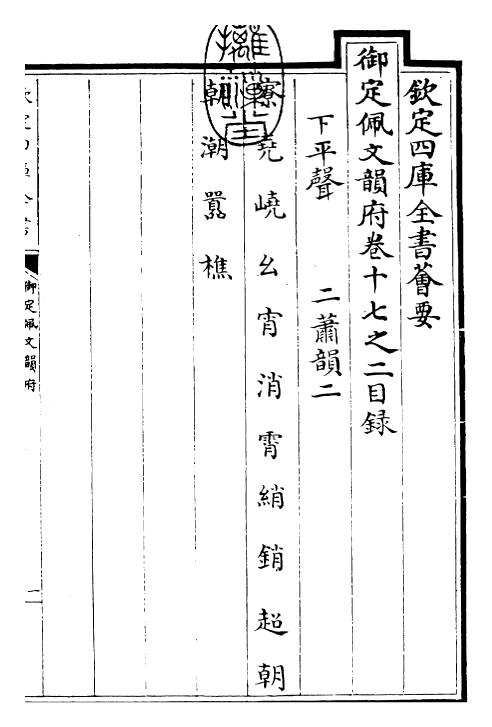 欽定四庫全書薈要
御定佩文韻府卷十七之二目錄
下平聲　二蕭韻二
寮 堯 嶢 幺 宵 消 霄 綃 銷 超 朝
朝 潮 囂 樵
欽定四庫全書
御定佩文韻府
一